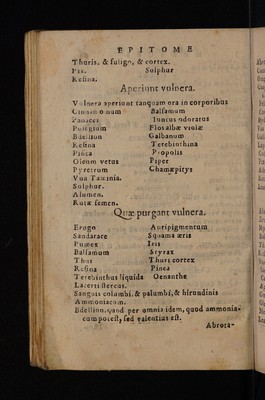 EPITOME
Thuris, & fuligo, & cortex.
Pix. Sulphur
Resina.
Aperiunt vulnera.
Vulnera aperiunt tanquam ora in corporibus
Cinnamomum Balsamum
Panaces Iuncus odoratus
Pulegium Flos albæ violæ
Bdellion Galbanum
Resina Terebinthina
Pinea Propolis
Oleum vetus Piper
Pyretrum Chamæpitys
Vua Taminia.
Sulphur.
Alumen.
Rutæ semen.
Quæ purgant vulnera.
Erugo Auripigmentum
Sandarace Squama æris
Pumex Iris
Balsamum Styrax
Thus Thuris cortex
Resina Pinea
Terebinthus liquida Oenanthe
Lacerti stercus.
Sanguis columbi, & palumbi, & hirundinis
Ammoniacum.
Bdellion, quod per omnia idem, quod ammonia-
cum potest, sed valentius est.
Abrota-